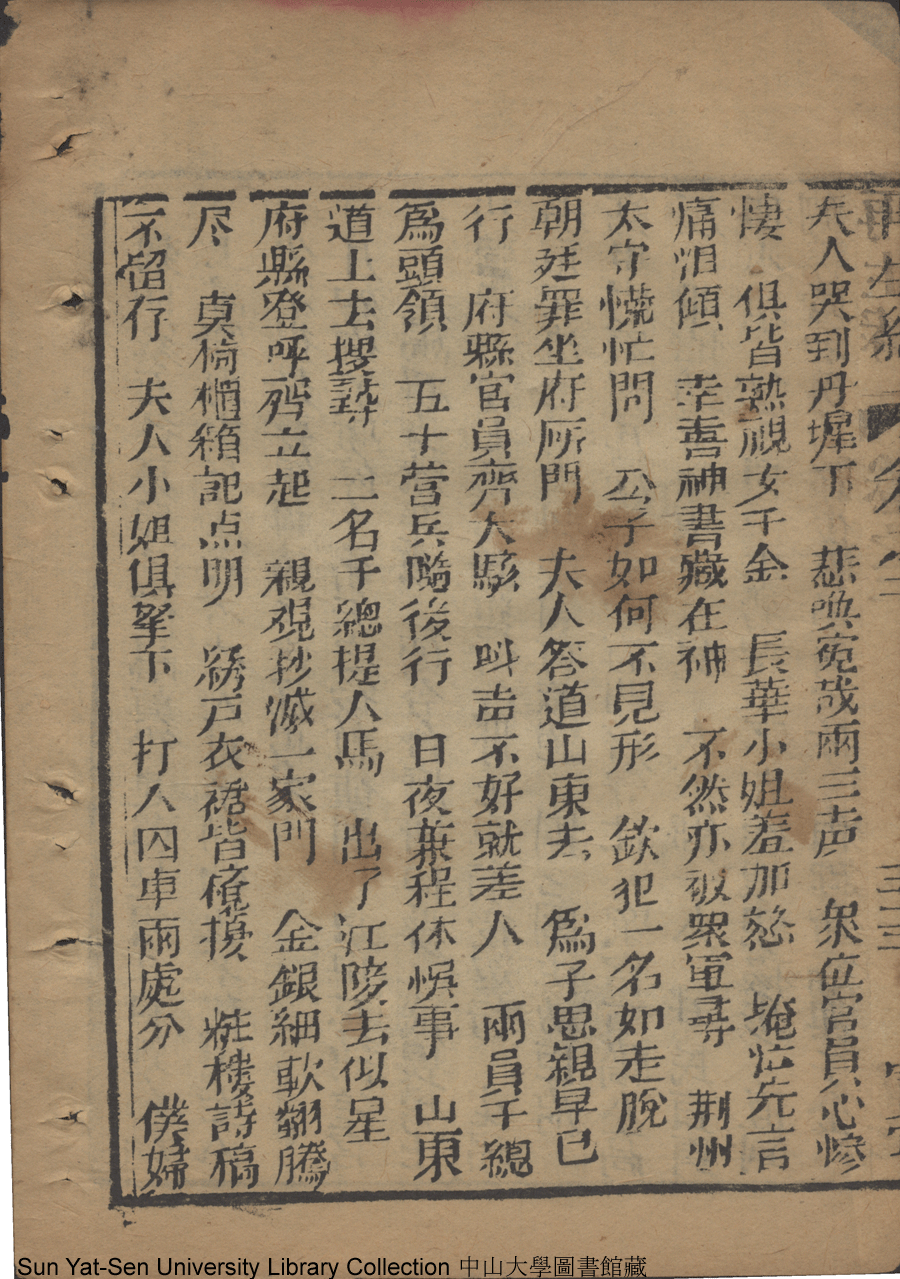 再生緣
夫人哭到丹墀下　悲喚寃哉兩三声　衆位官員心慘
悽　俱皆熟視女千金　長華小姐羞加怒　掩忙先言
痛泪傾　幸喜神書藏在神　不然亦被眾軍尋　荆州
太守慌忙問　公子如何不見形　欽犯一名如走脫
朝廷罪坐府厛門　夫人答道山東去　爲子思親早已
行　府縣官員齊大駭　叫吉不好就差人　兩員千總
爲頭領　五十營兵隨後行　日夜兼程休悞事　山東
道上去搜尋　二名千總提人馬　出了江陵去似星
府縣登呼齊立起　親覌抄滅一家門　金銀細軟翻騰
尽　莫椅櫃箱記点明　綉戸衣裙皆傹擾　粧樓詩稿
不留存　夫人小姐俱拏下　打入囚車兩處分　僕婦
Sun Yat-Sen University Library Collection 中山大學圖書館藏